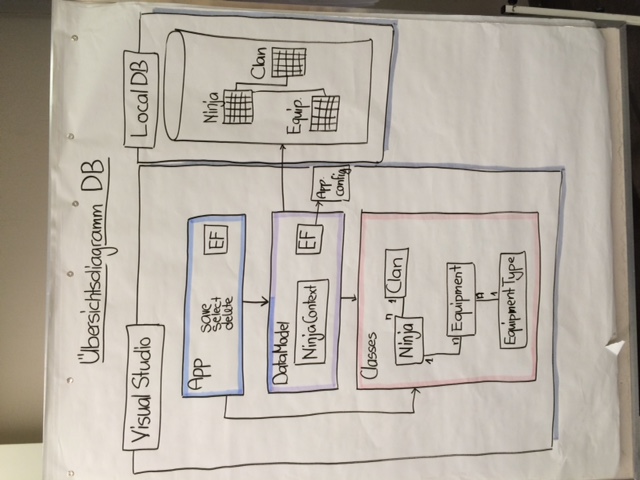 Übersichtsdiagramm DB
Visual Studio
LocalDB
App
save
select
delete
EF
DataModel
NinjaContext
EF
App.
config
Classes
Ninja
n
1
Clan
1
n
Equipment
n
1
EquipmentType
Ninja
Clan
Equip.